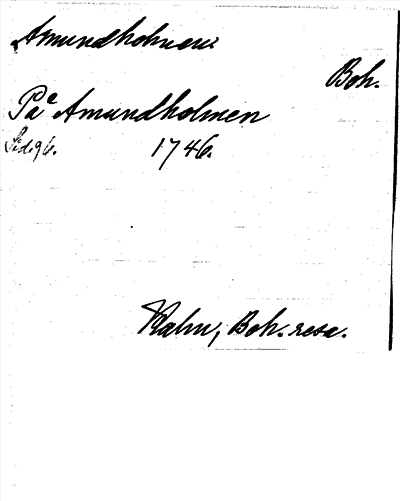 Amundholmen
Boh.
På Amundholmen
Sid. 96. 1746.
Kalm, Boh. resa.